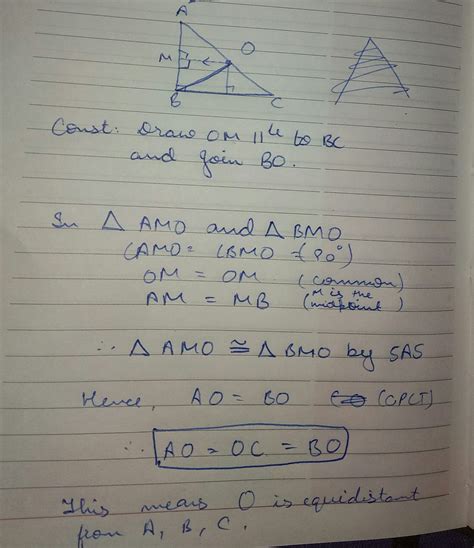 A
O
M
B
C
Const: Draw OM ||le to BC
and join BO.
In △ AMO and △ BMO
∠AMO = ∠BMO = (90°)
OM = OM (common)
AM = MB (M is the midpoint)
∴ △ AMO ≅ △ BMO by SAS
Hence, AO = BO (CPCT)
∴ AO = OC = BO
This means O is equidistant
from A, B, C.